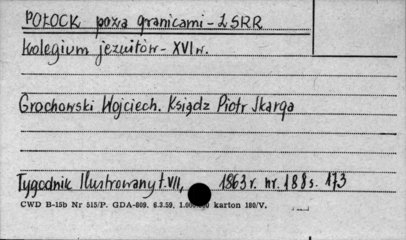 POŁOCK poza granicami - ZSRR
Kolegium jezuitów - XVI w.
Grochowski Wojciech. Ksiądz Piotr Skarga
Tygodnik Ilustrowany t. VII, 1863 r. nr. 188 s. 173
CWD B-15b Nr 515/P. GDA-809. 6.3.59. karton 180/V.